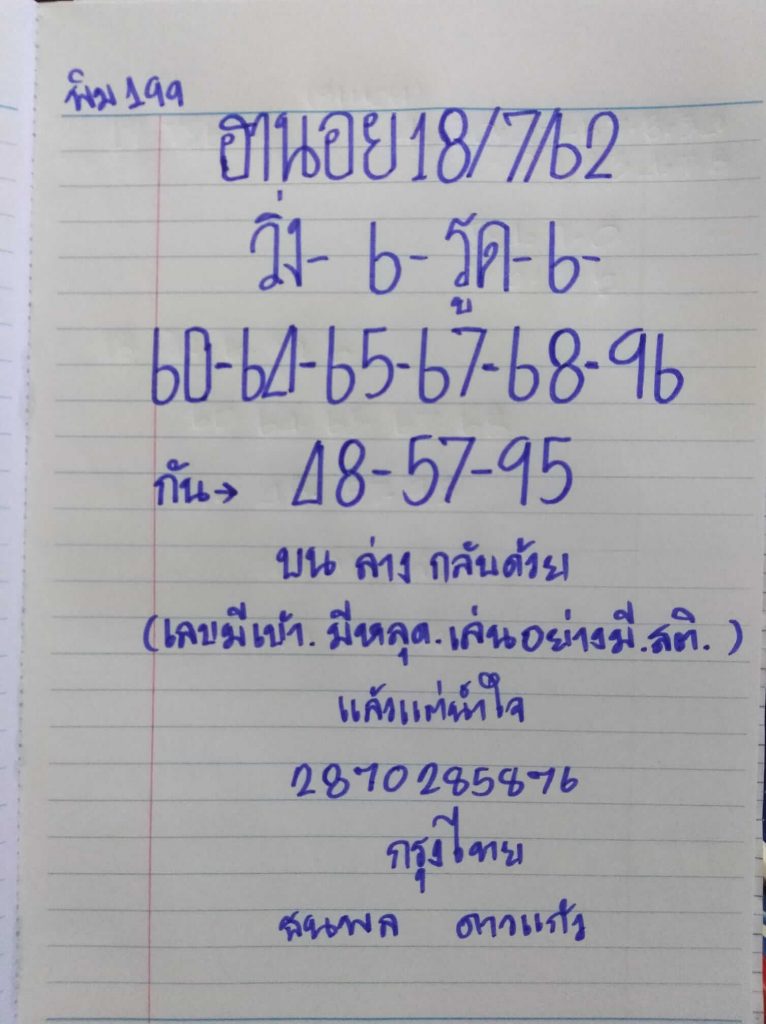 พิม 199
ฮานอย 18/7/62
วิ่ง- 6- รูด- 6-
60-64-65-67-68-96
กัน→ 48-57-95
บน ล่าง กลับด้วย
(เลขมีเข้า. มีหลุด. เล่นอย่างมี. สติ. )
แล้วแต่น้ำใจ
2870285876
กรุงไทย
ธนพล ดาวแก้ว